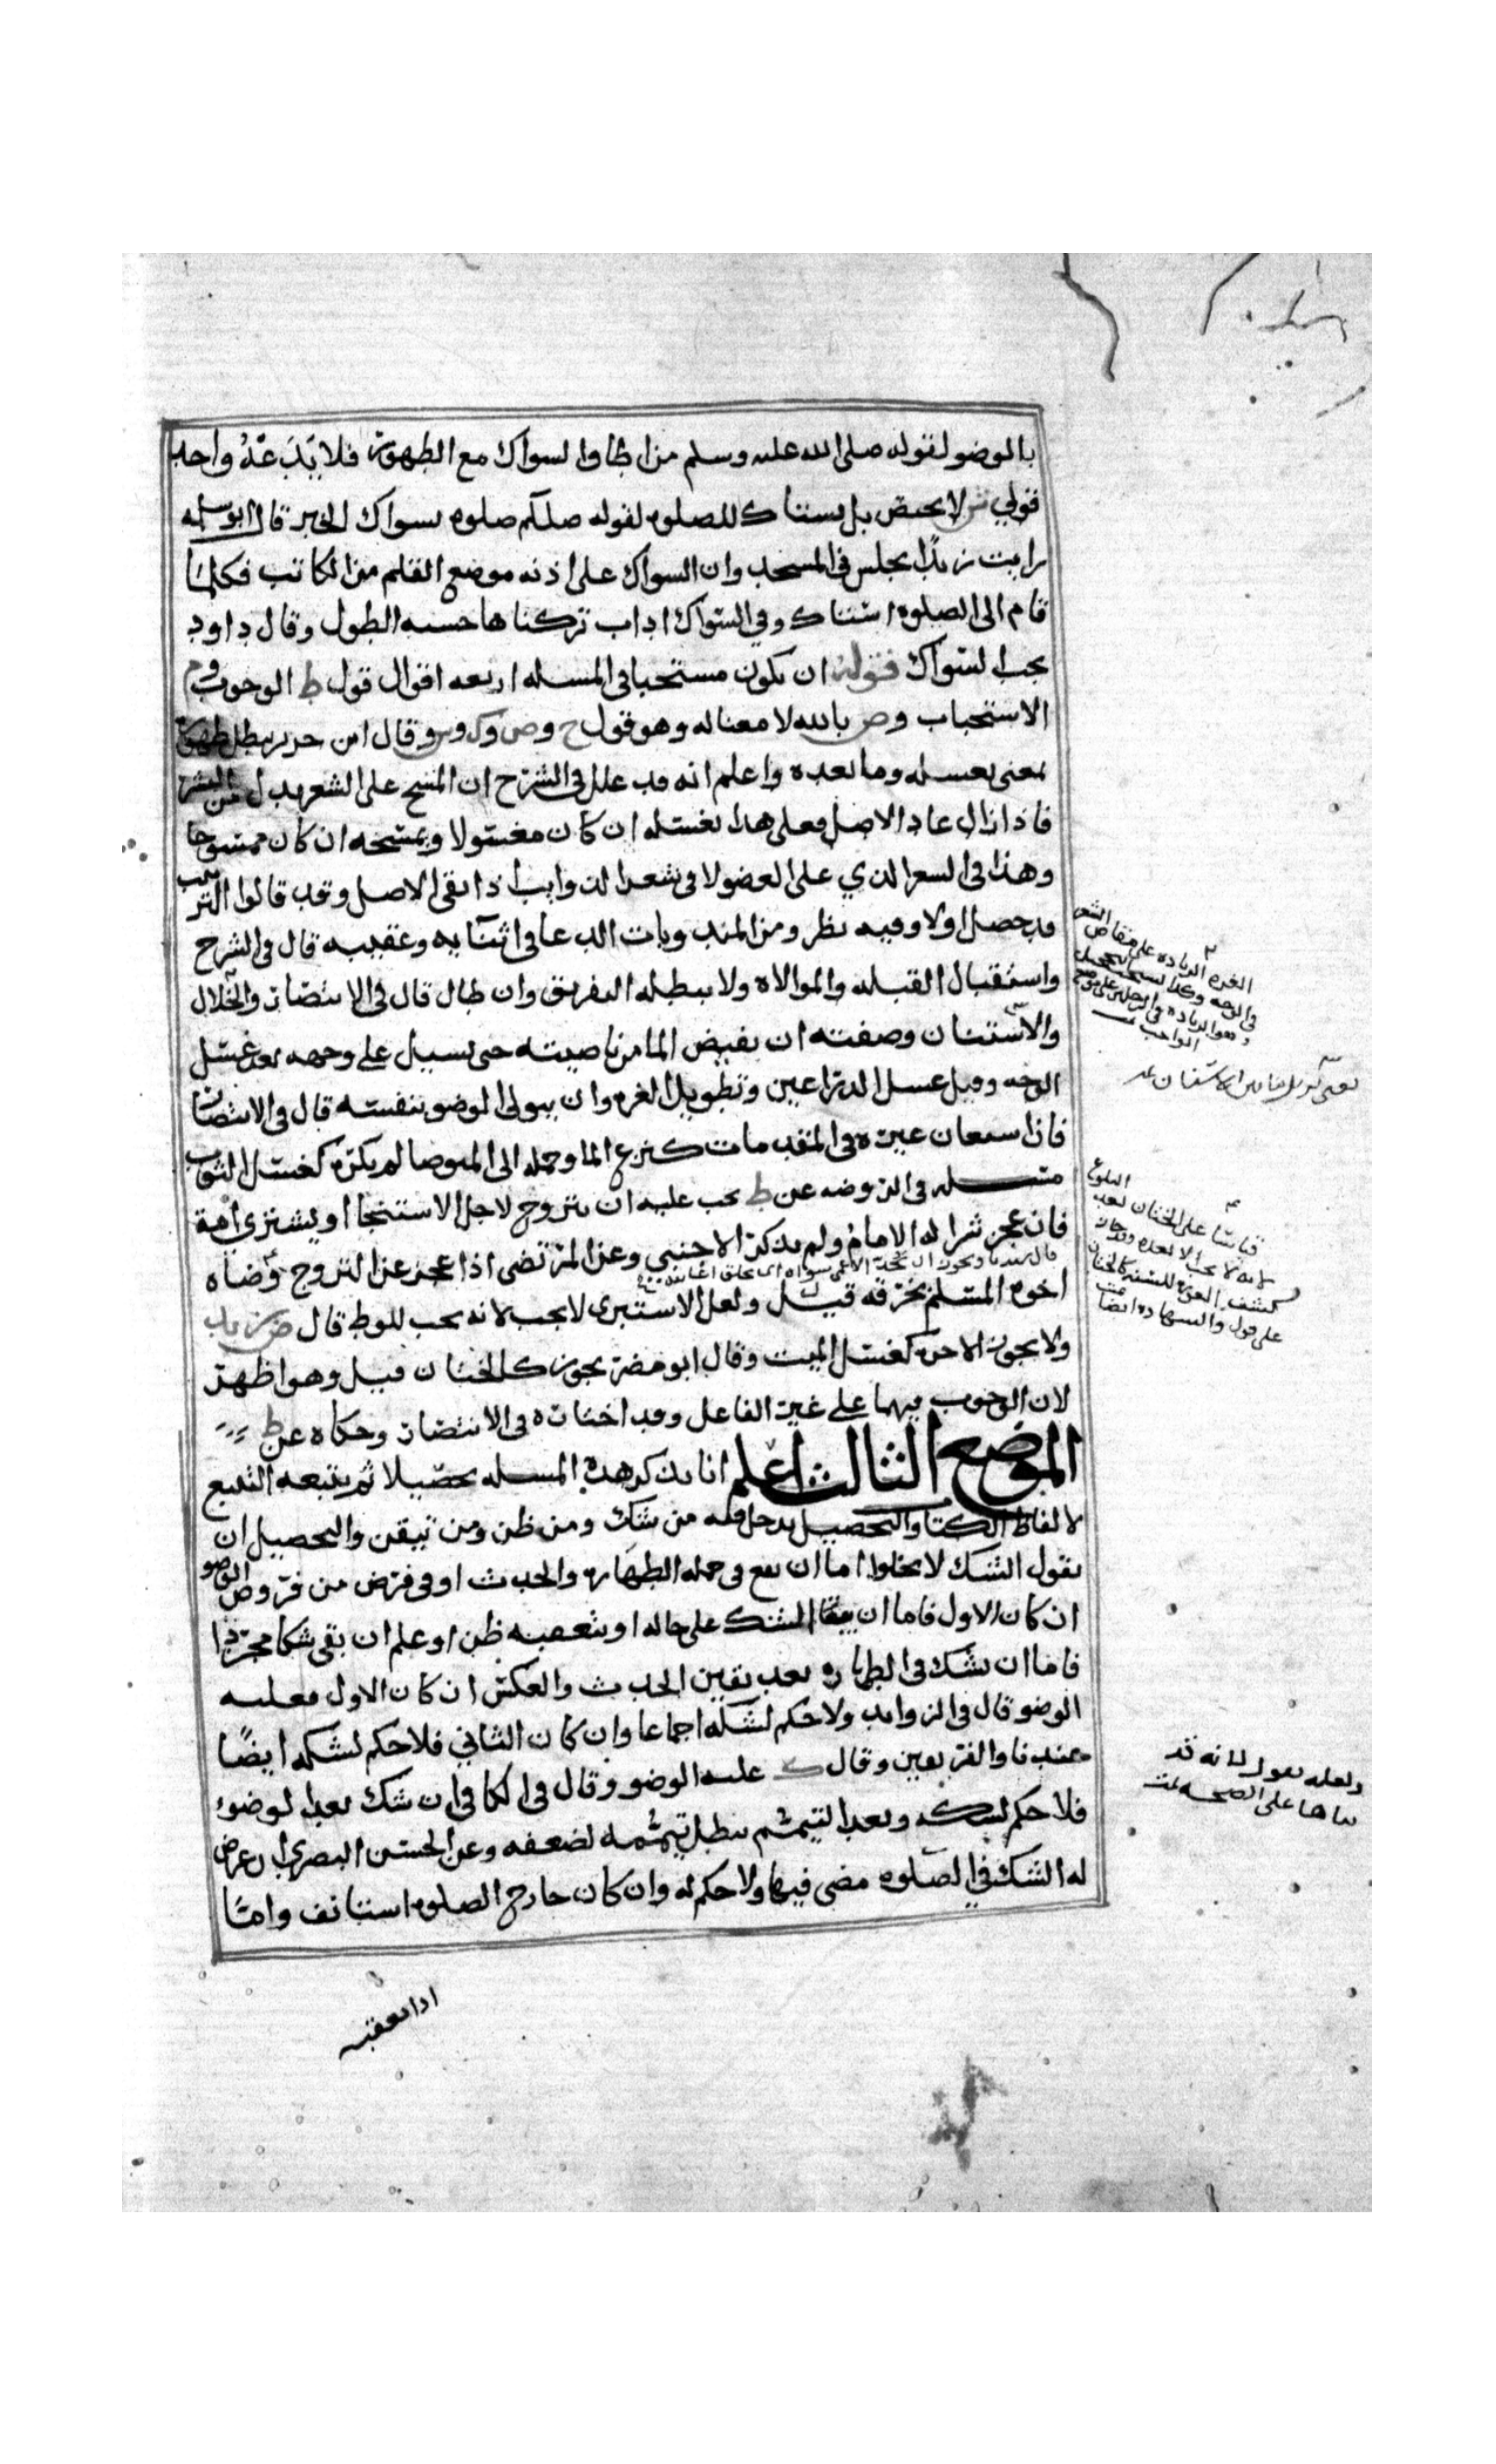 بالوضو لقوله صلى الله عليه وسلم من اطاق السواك مع الطهور فلا يدعنه واحد
قولي لا يختص بل يستاك للصلوه لقوله صللم صلوه بسواك الخبر قال ابو سلمه
رايت زيدا يجلس في المسجد وان السواك على اذنه موضع القلم من الكاتب فكلما
قام الى الصلوه استاك وفي السواك اداب تركناها خشيه الطول وقال داود
يجب السواك قوله ان يكون مستحبا في المسله اربعه اقوال قول ط الوجوب وم
الاستحباب وص بالله لا معنا له وهو قول ح وص وك وش وقال ابن جرير يبطل طهوره
معنى يغسله وما بعده واعلم انه قد علل في الشرح ان المسح على الشعر بدل من البشر
فاذا زال عاد الاصل فعلى هذا يغسله ان كان مغسولا ويمسحه ان كان ممسوحا
وهذا في الشعر الذي على العضو لا في شعر الذوايب اذا بقي الاصل وقد قالوا الترتيب
قد حصل اولا وفيه نظر ومن المندوبات الدعا في اثنايه وعقيبه قال في الشرح
واستقبال القبله والموالاه ولا يبطله التفريق وان طال قال في الانتصار والخلال
والاستنان وصفته ان يفيض الما من ناصيته حتى يسيل على وجهه بعد غسل
الوجه وقبل غسل الذراعين وتطويل الغره وان يتولى الوضو بنفسه قال في الانتصار
فاذا استعان غيره في المقدمات كنزع الما وحمله الى المتوضا لم يكره كغسل الثوب
مسله في الروضه عن ط يجب عليه ان يتزوج لاجل الاستنجا او يشتري امة
فان عجز شرا له الامام ولم يذكر الاجنبي وعن المرتضى اذا عجز عن التزوج وضاه
اخوه المسلم بخرقه قيل ولعل الاستبرى لا يجب لانه يجب للوطي قال ض زيد
ولا يجوز الاجره كغسل الميت وقال ابو مضر يجوز كالختان قيل وهو اظهر
لان الوجوب فيهما على غير الفاعل وقد اختاره في الانتصار وحكاه عن ط
الموضع الثالث اعلم انا نذكر هذه المسله تحصيلا ثم يتبعه التتبع
لالفاظ الكتاب والتحصيل يدخل فيه من شك ومن ظن ومن تيقن والتحصيل ان
نقول الشك لا يخلوا اما ان يقع في جمله الطهاره والحدث او في فرض من فروض الوضو
ان كان الاول فاما ان يبقا الشك على حاله او يتعقبه ظن او علم ان بقي شكا مجردا
فاما ان يشك في الطهاره بعد يقين الحدث والعكس ان كان الاول فعليه
الوضو قال في الزوايد ولا حكم لشكه اجماعا وان كان الثاني فلا حكم لشكه ايضا
عندنا والفريقين وقال ك عليه الوضو وقال في الكافي ان شك بعد الوضو
فلا حكم لشكه وبعد التيمم يبطل تيممه لضعفه وعن الحسن البصري ان عرض
له الشك في الصلوه مضى فيها ولا حكم له وان كان خارج الصلوه استانف واما
اذا تعقبه
الغره الزياده على منقاص الشعر
في الوجه وكذا يستحب التحجيل
وهو الزياده في الرجلين على موضع
الواجب
قياسا على الختان بعد البلوغ
لانه لا يجب الا بعده وقد جاز
كشف العوره للسنه كالختان
على قول والشهاده ايضا
ولعله يقول انه قد
بناها على الصحه